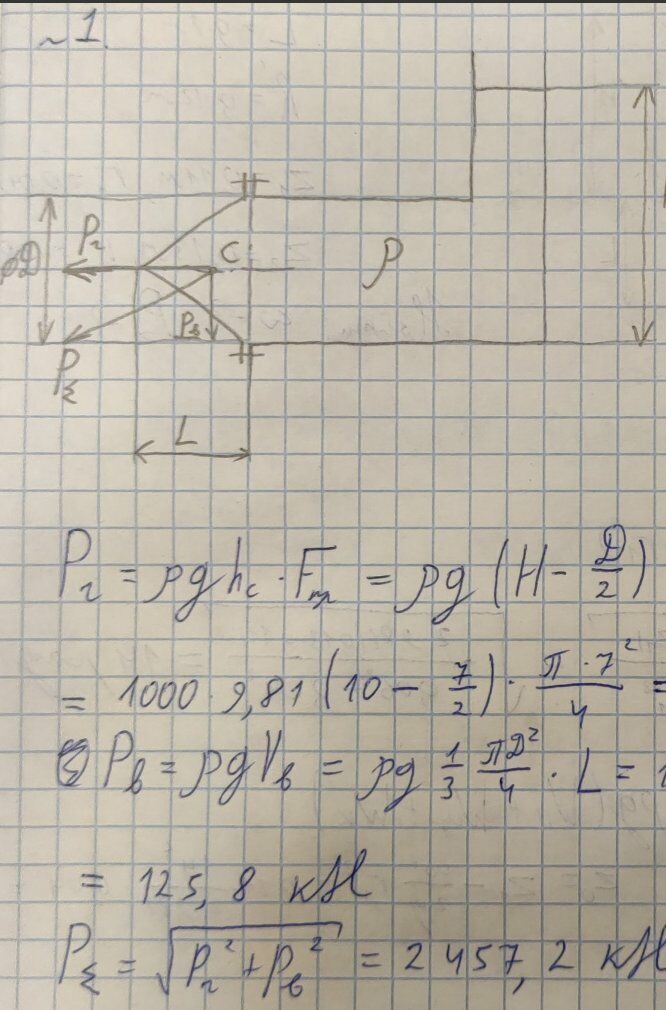 ~1.
P₂ C ρ
øD
P_в
P_Σ
L
P₂ = ρgh_c · F_пр = ρg (H - D/2)
= 1000 · 9,81 (10 - 7/2) · π · 7²/4 =
P_в = ρgV_в = ρg 1/3 πD²/4 · L = 1
= 125,8 кН
P_Σ = √(P₂² + P_в²) = 2 457,2 кН